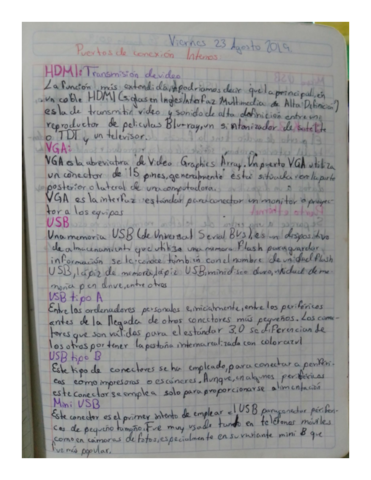 Viernes 23 Agosto 2024
Puertos de conexión Internos.
HDMI: Transmisión de video
La función más extendida y podríamos decir que la principal, en
un cable HDMI (Siglas en Ingles Interfaz Multimedia de Alta Definición)
es la de transmitir video y sonido de alta definición entre un
reproductor de peliculas Blu-ray, un sintonizador de
o TDT y un televisor.
VGA:
VGA es la abreviatura de Video Graphics Array. Un puerto VGA utiliza
un conector de 15 pines, generalmente está situado en la parte
posterior o lateral de una computadora.
VGA es la interfaz estándar para conectar un monitor o proyec-
tor a los equipos
USB
Una memoria USB (de Universal Serial Bus) es un dispositivo
de almacenamiento que utiliza una memoria flash para guardar
información se le conoce también con el nombre de unidad flash
USB, lápiz de memoria, lápiz USB, minidisco duro, unidad de me-
moria, pen drive, entre otros
USB tipo A
Entre los ordenadores personales e, inicialmente, entre los periféricos
antes de la llegada de otros conectores más pequeños. Los conec-
tores que son validos para el estándar 3.0 se diferencian de
los otros por tener la pestaña interna realizada con color azul
USB tipo B
Este tipo de conectores se ha empleado, para conectar a perifé-
ricos como impresoras o escáneres. Aunque, en algunos periféricos
este conector se emplea solo para proporcionarse alimentación
Mini USB
Este conector es el primer intento de emplear el USB para periféri-
cos de pequeño tamaño. Fue muy usado tanto en teléfonos móviles
como en cámaras de fotos, especialmente en su variante mini B que
fue más popular.